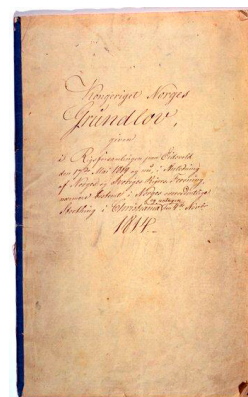 Kongeriget Norges
Grundlov,
given
i Rigsforsamlingen paa Eidsvold
den 17de Mai 1814 og nu, i Anledning
af Norges og Sveriges Rigers Forening,
nærmere bestemt i Norges overordentlige
og vedtagen
Storthing i Christiania den 4de Novbr
1814.